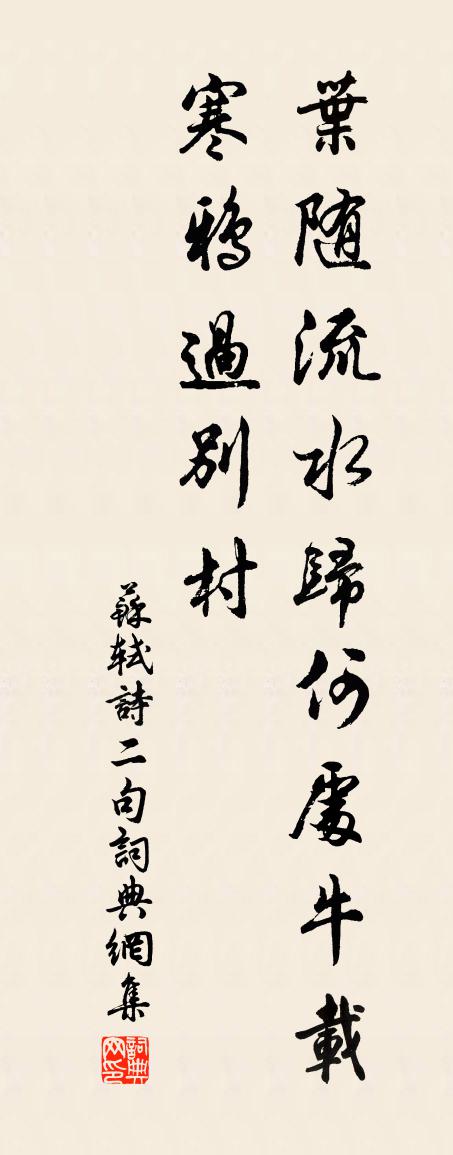 葉隨流水歸何處牛載
寒鴉過別村
蘇軾詩二句詞典網集
詞典网印